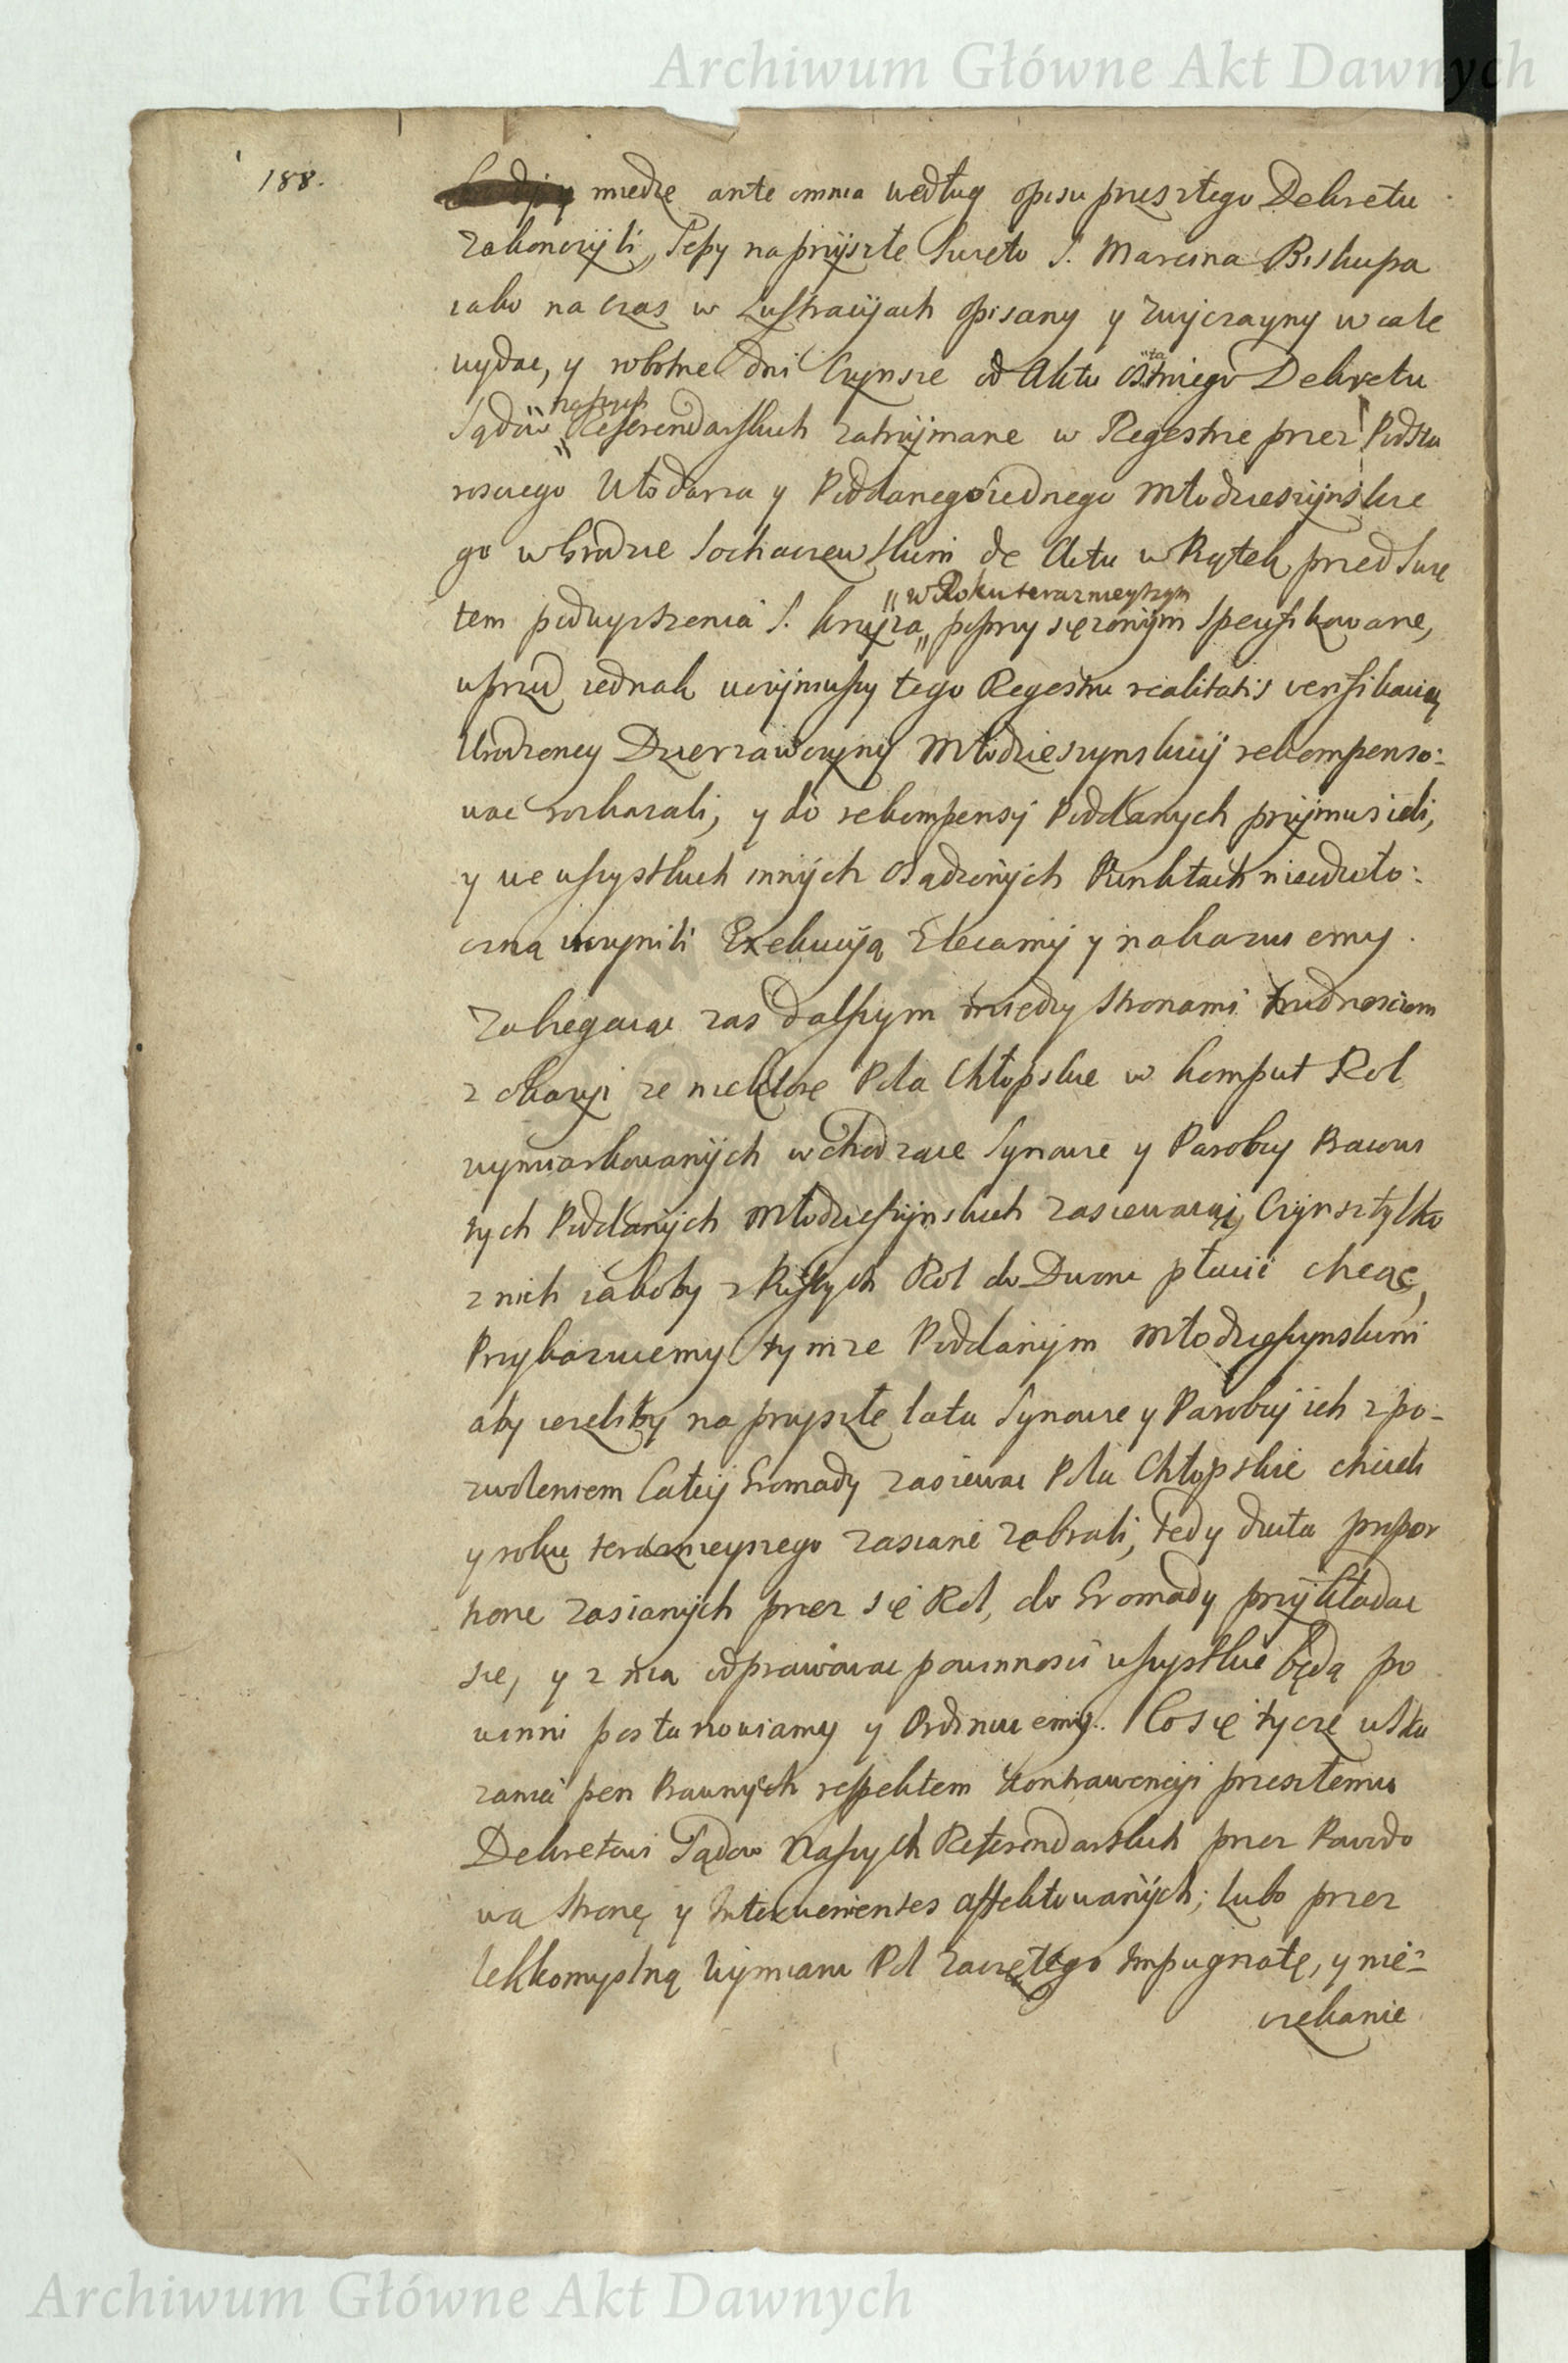 Archiwum Główne Akt Dawnych
188.
miedze ante omnia według opisu przeszłego Dekretu
zakonczyli, Sepy na przyszłe Swięto S. Marcina Biskupa
iako na czas w Lustracyiach opisany y zwyczayny w cale
wydac, y robotne dni Czynsze od Aktu ostatniego Dekretu
Sądów naszych Referendarskich zatrzymane w Regestrze przez Podsta
rosciego Włodarza y Poddanego iednego Młodzieszynskie
go w Grodzie Sochaczewskim de Actu w Piątek przed Swię
tem podwyszszenia S. Krzyza w Roku teraznieyszym poprzysięzonym specifikowane,
wprzod iednak uczyniwszy tego Regestru realitatis verifikacyą
Urodzoney Dzierzawczyny Młodzieszynskiy rekompenso:
wac roskazali, y do rekompensy Poddanych przymusieli,
y we wszystkich innych osądzonych Punktach nieodwło:
czną uczynili Exekucyą Zlecamy y nakazuiemy.
Zabiegaiąc zas dalszym między stronami trudnosciom
z okazyi ze niektore Pola Chłopskie w komput Rol
wymiarkowanych wchodzące Synowie y Parobcy Pracowi
tych Poddanych Młodzieszynskich zasiewaią, Czynsz tylko
z nich iakoby z Pustych Rol do Dworu płacić chcąc,
Przykazuiemy tymze Poddanym Młodzieszynskim
aby iezeliby na przyszłe lata Synowie y Parobcy ich z po-
zwoleniem Całey Gromady zasiewac Pola Chłopskie chcieli
y roku teraznieyszego zasiane zebrali, tedy iuxta propor
tione zasianych przez się Rol, do Gromady przykładac
się, y z nią odprawowac powinnosci wszystkie będą po
winni postanowiamy y Ordinuiemy. Co się tycze wska
zania pen Prawnych respektem kontrawencyi przeszłemu
Dekretowi Sądow Naszych Referendarskich przez Powodo
wa stronę y Intervenientes affektowanych; lubo przez
lekkomyslną Wymiaru Pol zaczętego impugnatę, y nie-
czekanie
Archiwum Główne Akt Dawnych